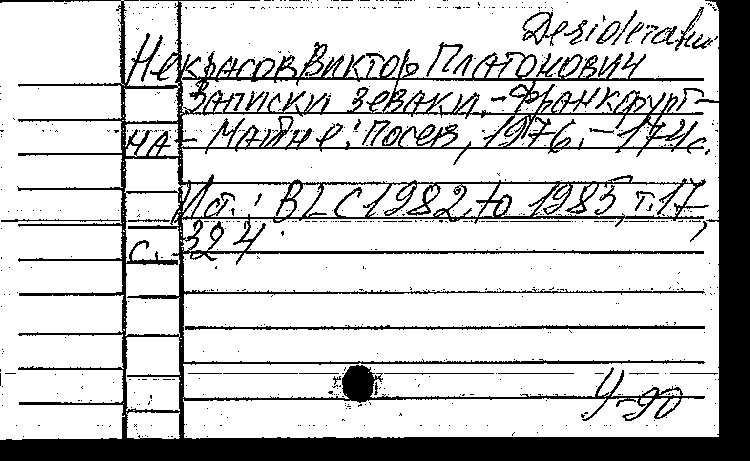 Desiderata
Некрасов Виктор Платонович
Записки зеваки.-Франкфурт-
на-Майне: Посев, 1976.-174с.
Ист.: BLC 1982 to 1985, т.17,
с.-324.
У-90